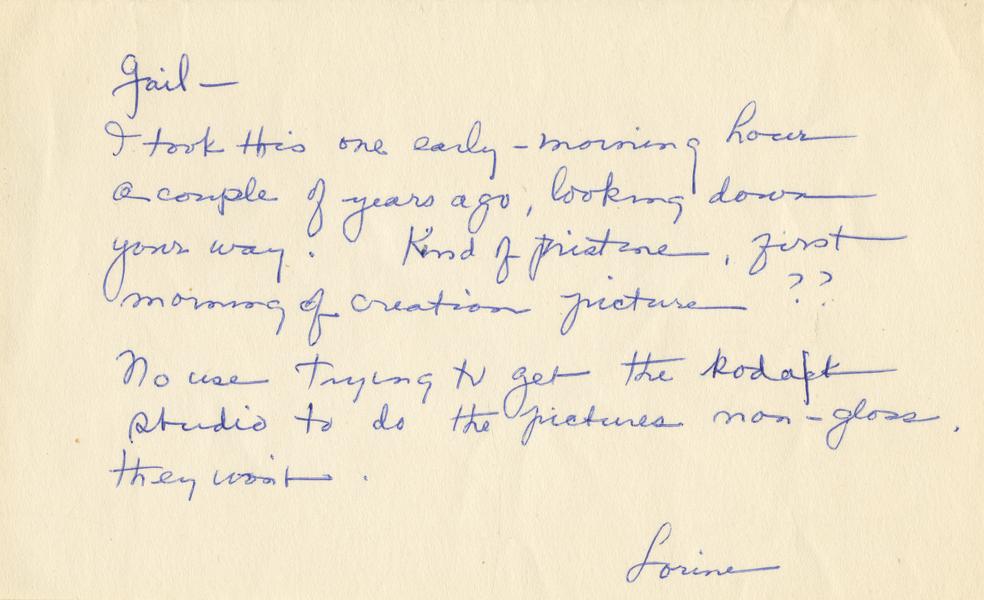 Gail —
I took this one early-morning hour
a couple of years ago, looking down
your way. Kind of pristine, first
morning of creation picture ??
No use trying to get the
studio to do the pictures non-gloss,
they won't.
Lorine